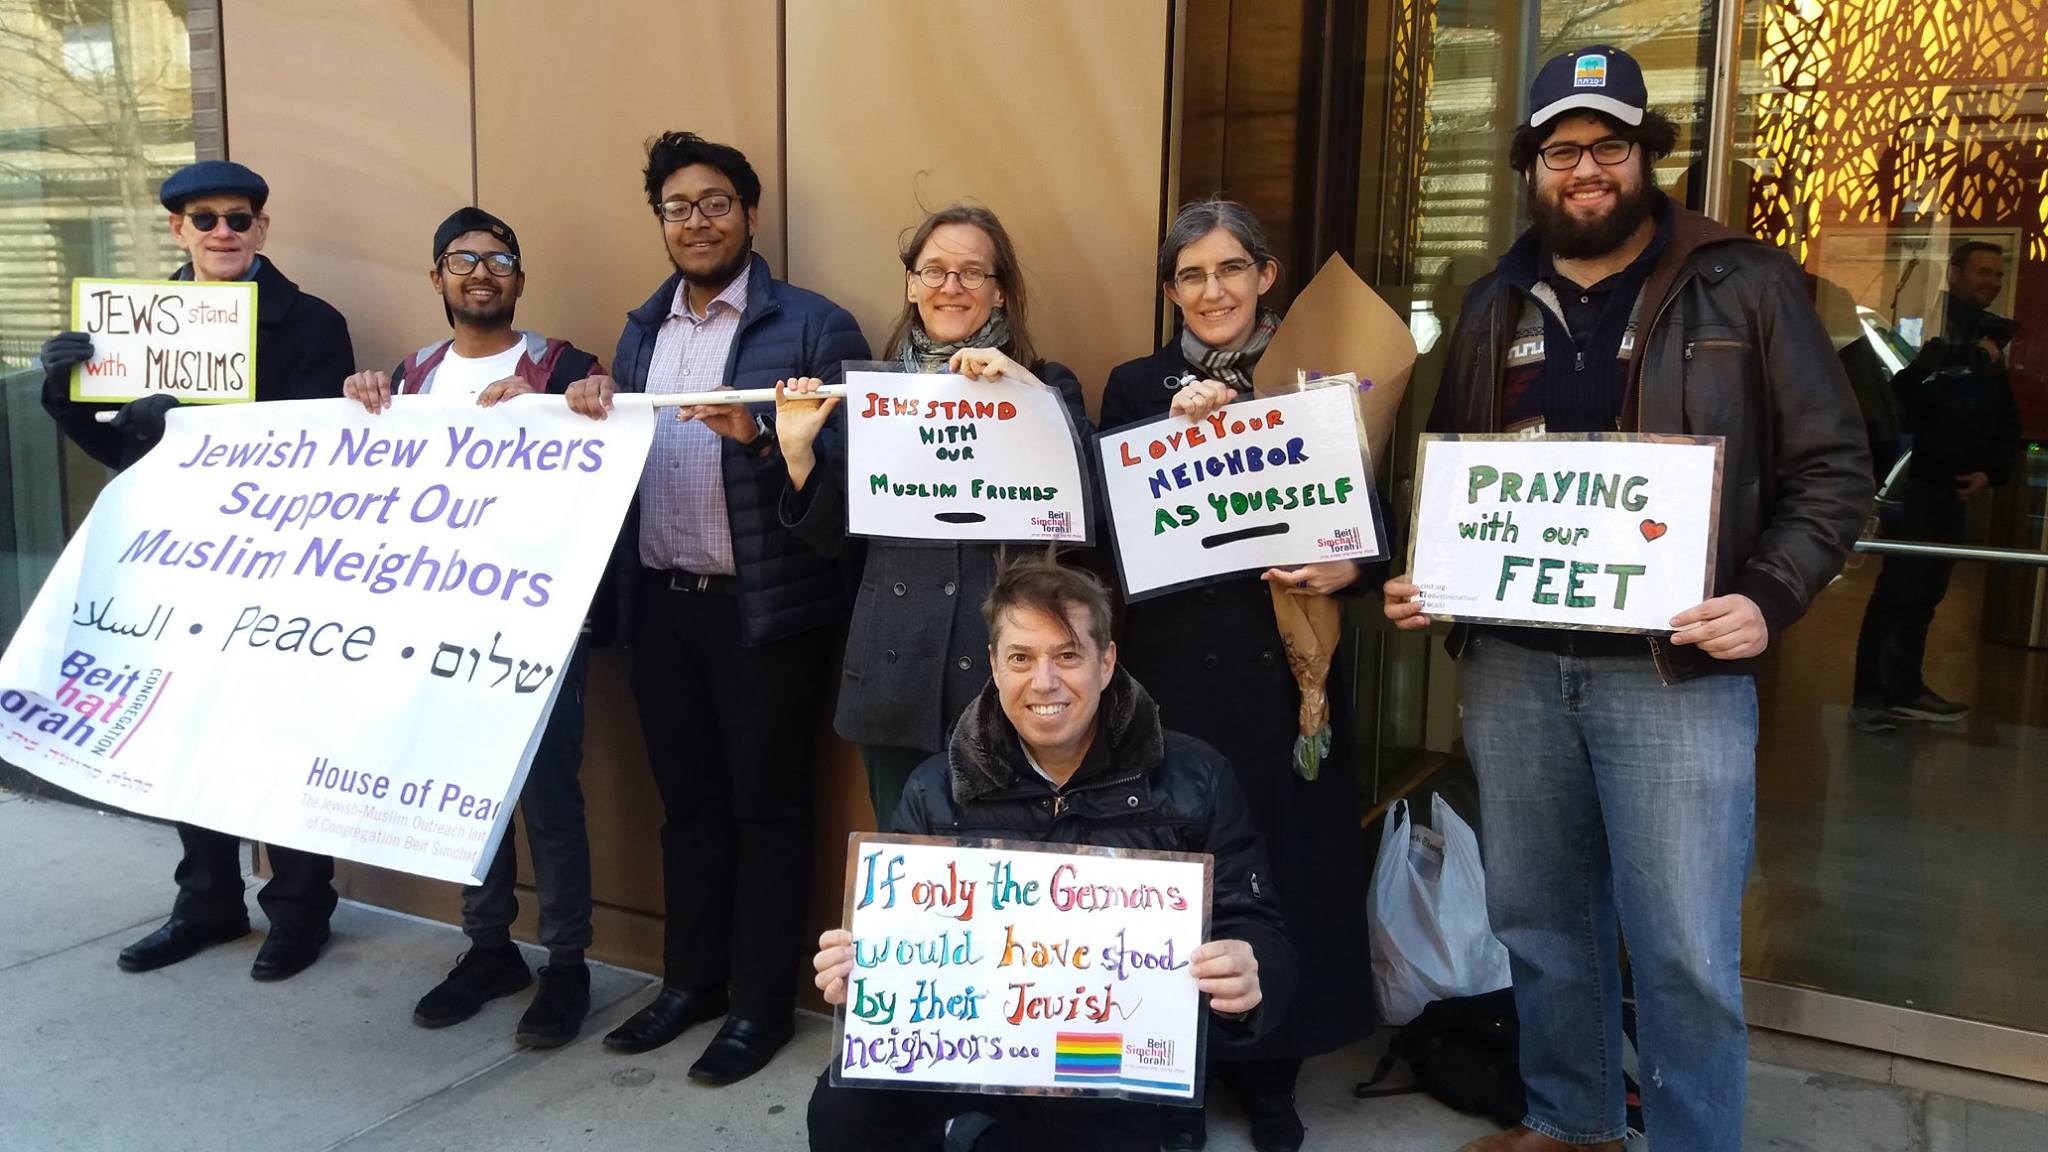 JEWS stand
with MUSLIMS
Jewish New Yorkers
Support Our
Muslim Neighbors
السلا • Peace • שלום
Beit
hat
orah
CONGREGATION
House of Pea
The Jewish-Muslim Outreach Init
of Congregation Beit Simchat
JEWS STAND
WITH
OUR
MUSLIM FRIENDS
Beit
Simchat
Torah
LOVE YOUR
NEIGHBOR
AS YOURSELF
Beit
Simchat
Torah
PRAYING
with our
FEET
cbst.org
If only the Germans
would have stood
by their Jewish
neighbors...
Beit
Simchat
Torah